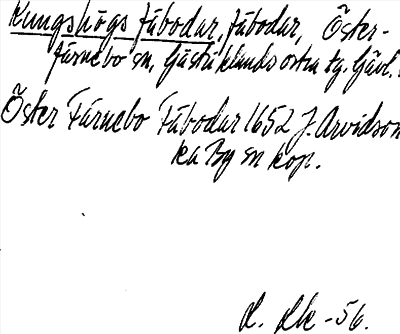 Kungshögs fäbodar, fäbodar, Öster-
färnebo sn, Gästriklands östra tg. Gävl.
Öster Färnebo Fäbodar 1652 J. Arvidson
ka By sn kop.
-56.